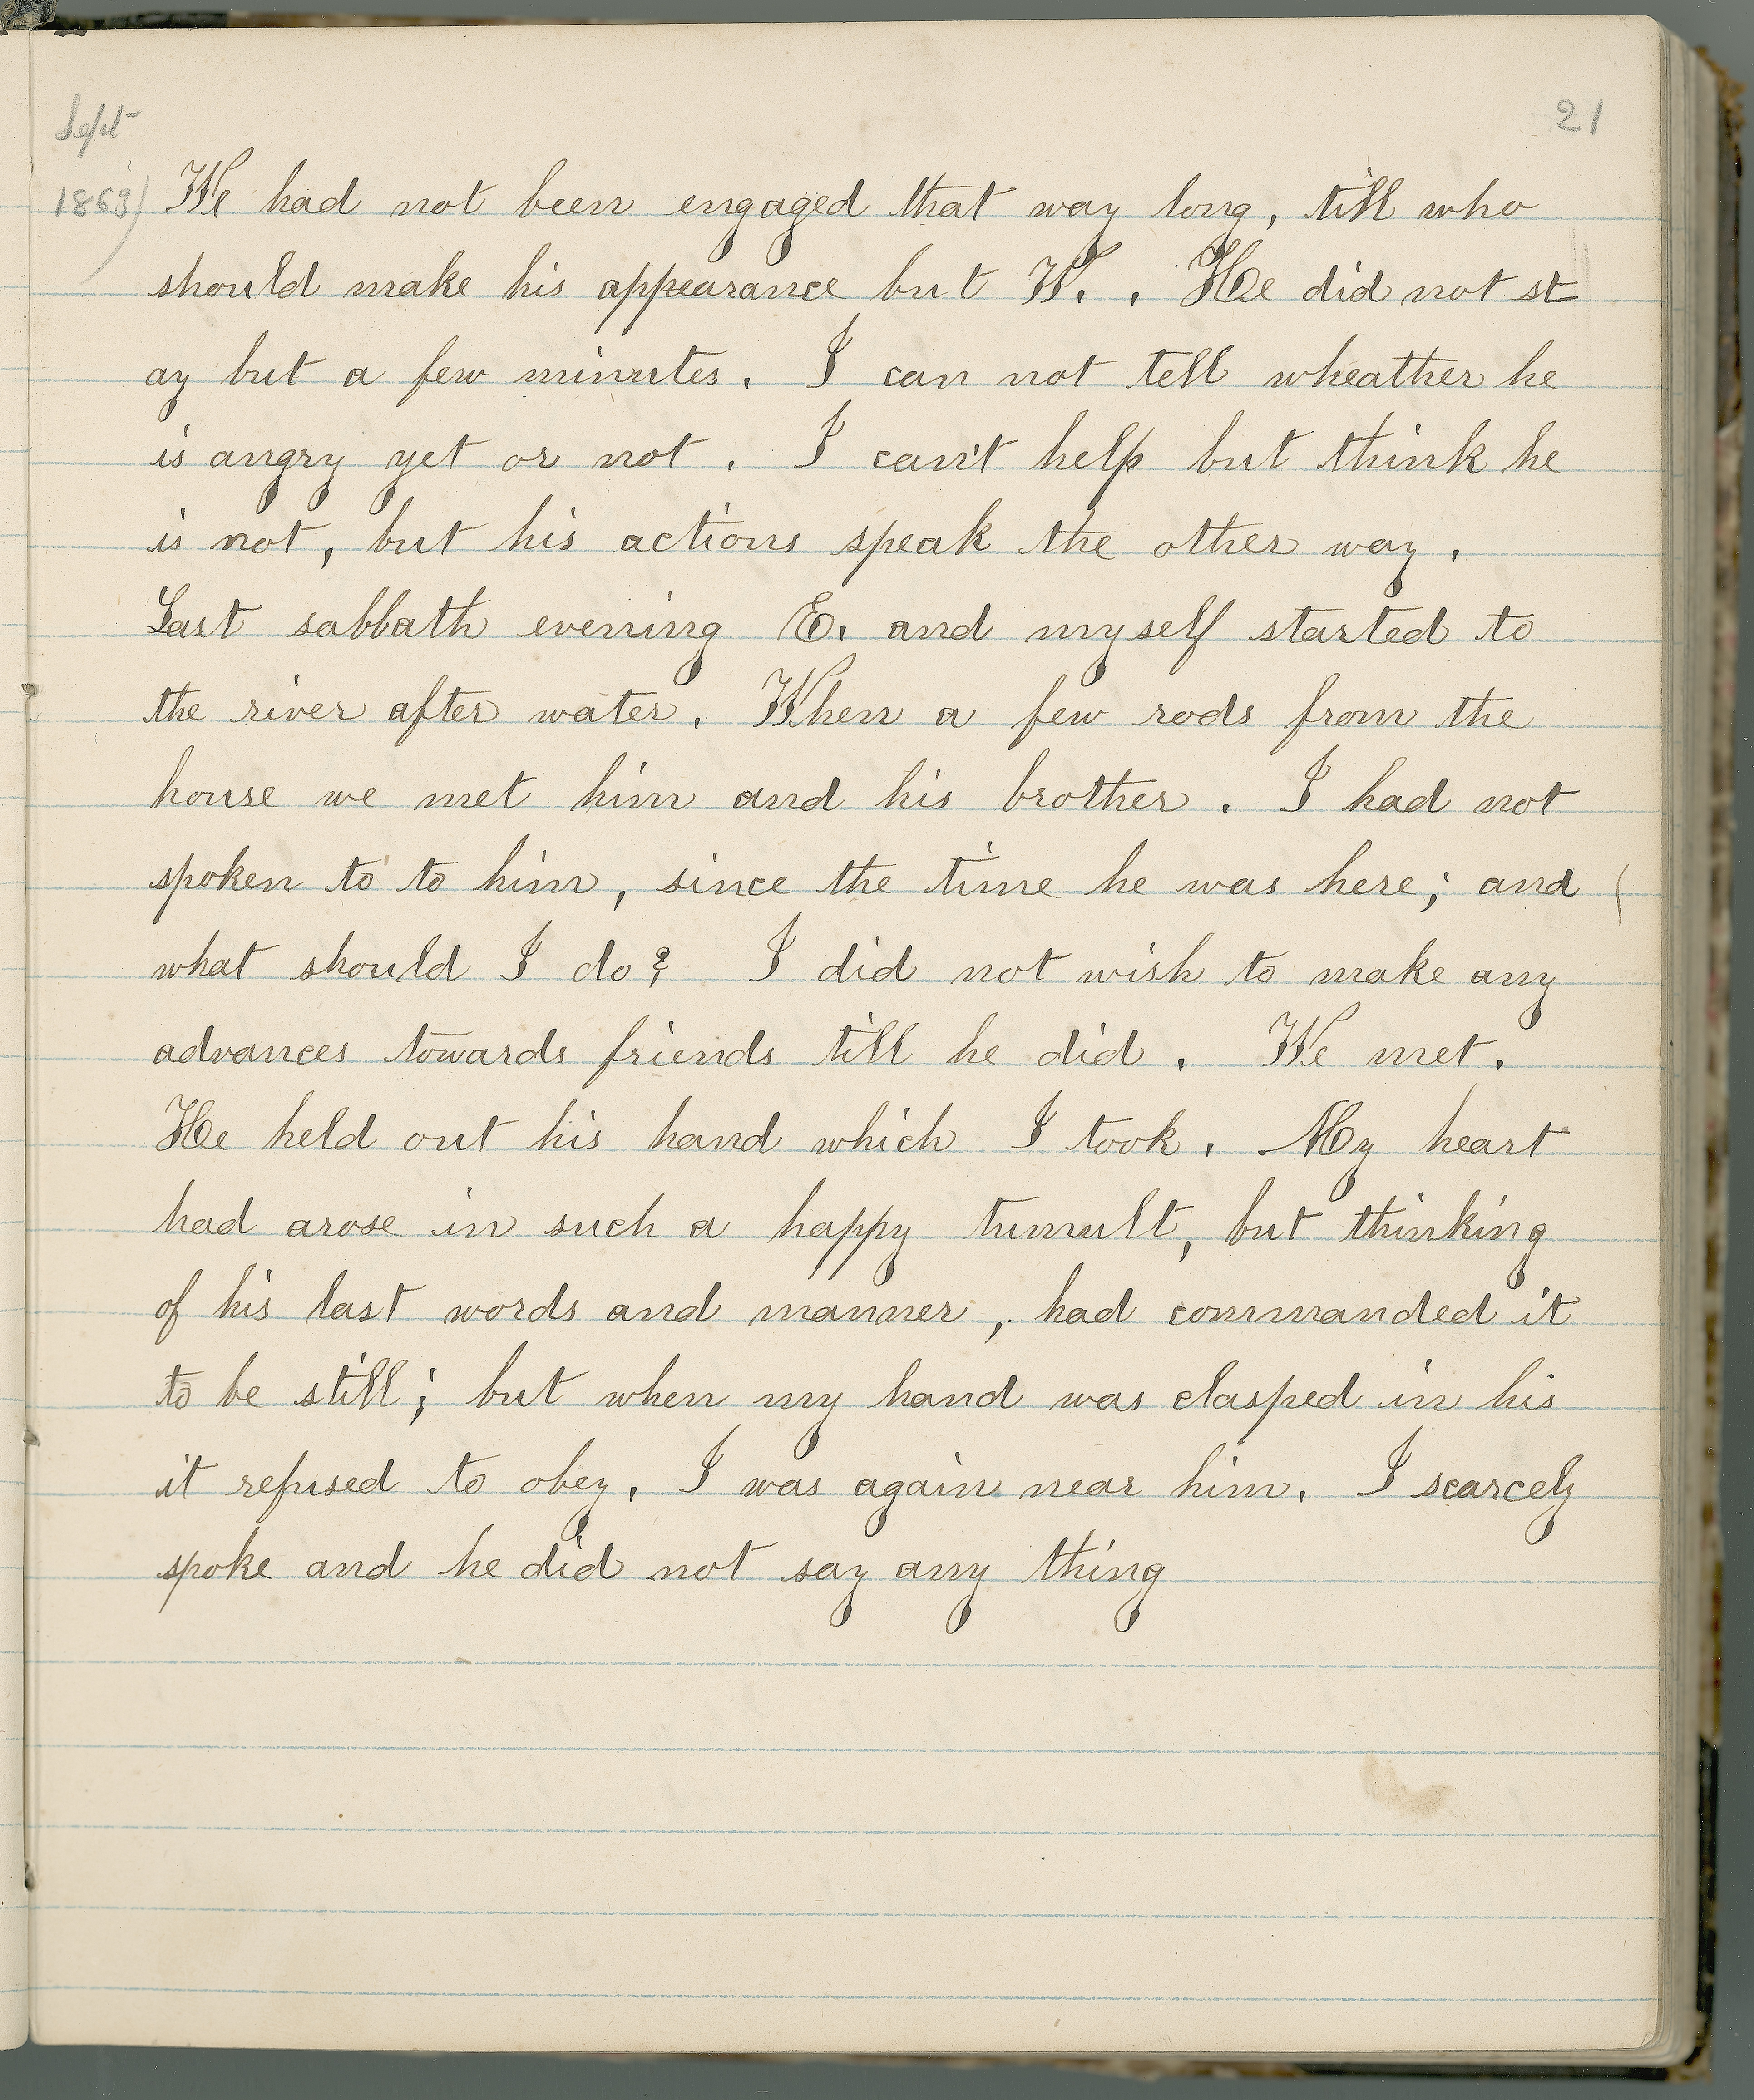 Sept
21
1863) We had not been engaged that way long, till who
should make his appearance but W. . He did not st
ay but a few minutes. I can not tell wheather he
is angry yet or not. I can't help but think he
is not, but his actions speak the other way.
Last sabbath evening E. and myself started to
the river after water. When a few rods from the
house we met him and his brother. I had not
spoken to to him, since the time he was here; and (
what should I do? I did not wish to make any
advances towards friends till he did. We met.
He held out his hand which I took. My heart
had arose in such a happy tumult, but thinking
of his last words and manner, had commanded it
to be still; but when my hand was clasped in his
it refused to obey. I was again near him. I scarcely
spoke and he did not say any thing